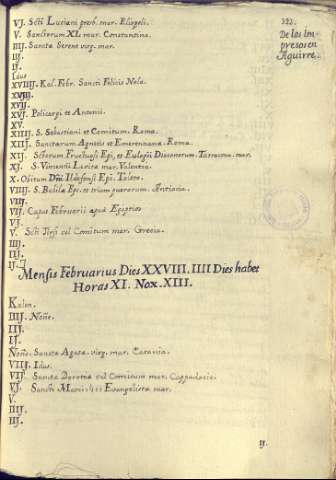 VJ. Scti Luciani presb. mar. Eliopoli.
322.
V. Sanctorum XL. mar. Constantina.
De los Im-
IIIJ. Sancta Serene virg. mar.
presos en
IIJ.
Aguirre.
IJ.
Idus
XVIIIJ. Kal. Febr. Sancti Felicis Nola.
XVIIJ.
XVIJ.
XVJ. Policarpi et Antonii.
XV.
XIIIJ. S. Sebastiani et Comitum. Roma.
XIIJ. Sanctarum Agnetis et Emerentiana. Roma.
XIJ. Sctorum Fructuosi Epi, et Eulogii Diaconorum. Tarracona. mar.
XJ. S. Vincentii Levita mar. Valentia.
X. Obitum Dñi Ildefonsi Epi. Toleto.
VIIIJ. S. Babilæ Epi. et trium puerorum. Antiochia.
VIIJ.
VIJ. Caput Februarii apud Egiptios
VJ.
V. Scti Tirsi cel Comitum mar. Grecia.
IIIJ.
IIJ.
IJ.
Mensis Februarius Dies XXVIII. IIII Dies habet
Horas XI. Nox. XIII.
Kalen.
IIIJ. None.
IIJ.
IJ.
None. Sancta Agata. virg. mar. Catania.
VIIJ. Idus.
VIJ. Sancta Dorotea cel Comitum mar. Cappadocia.
VJ. Sancti Evangelista mar.
V.
IIIJ.
IIJ.
IJ.